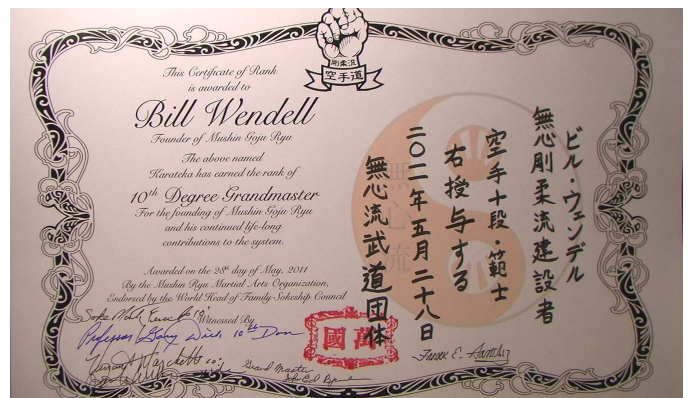 剛柔流
空手道
This Certificate of Rank
is awarded to
Bill Wendell
Founder of Mushin Goju Ryu
The above named
Karateka has earned the rank of
10th Degree Grandmaster
For the founding of Mushin Goju Ryu
and his continued life-long
contributions to the system.
Awarded on the 28th day of May, 2011
By the Mushin Ryu Martial Arts Organization,
Endorsed by the World Head of Family Sokeship Council
Witnessed By
Professor Gary 10th Dan
Grand Master
Frank E.
ビル・ウェンデル
無心剛柔流建設者
空手十段・範士
右授与する
二〇一一年五月二十八日
無心流武道団体
無心流
國萬